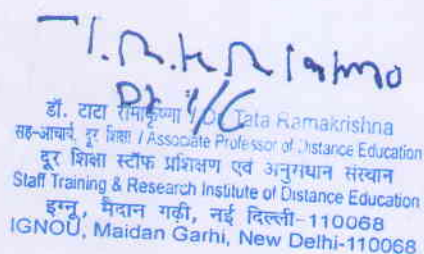 डॉ. टाटा रामाकृष्णा / Dr. Tata Ramakrishna
सह-आचार्य, दूर शिक्षा / Associate Professor of Distance Education
दूर शिक्षा स्टॉफ प्रशिक्षण एवं अनुसंधान संस्थान
Staff Training & Research Institute of Distance Education
इग्नू, मैदान गढ़ी, नई दिल्ली-110068
IGNOU, Maidan Garhi, New Delhi-110068